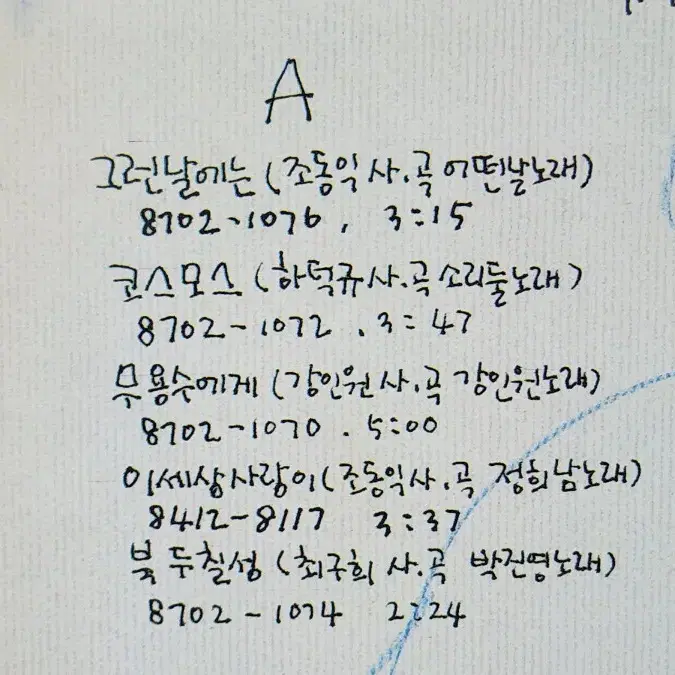 A
그런날에는 (조동익 사.곡 어떤날노래)
8702-1076, 3:15
코스모스 (하덕규사.곡 소리둘노래)
8702-1072 . 3:47
무용수에게 (강인원 사.곡 강인원노래)
8702-1070 . 5:00
이세상사랑이 (조동익사.곡 정희남노래)
8412-8117 3:37
북두칠성 (최구희 사.곡 박진영노래)
8702-1074 2:24